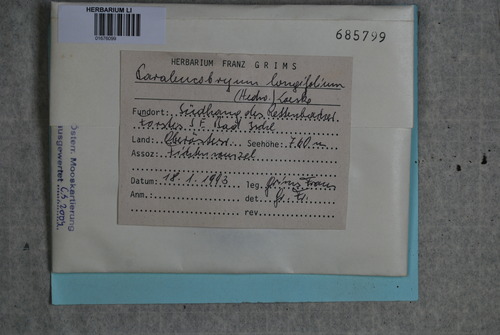 HERBARIUM LI
685799
HERBARIUM FRANZ GRIMS
Paraleucobryum longifolium
(Hedw.) Loeske
Fundort: Südhang des
F Bad Ischl
Land: Oberösterr. Seehöhe: 700 m
Assoz: Fichtenwurzel
Datum: 18.1.1993 leg. Grims Franz
Anm. det. Gr. Fr.
rev.
Österr. Mooskartierung
ausgewertet